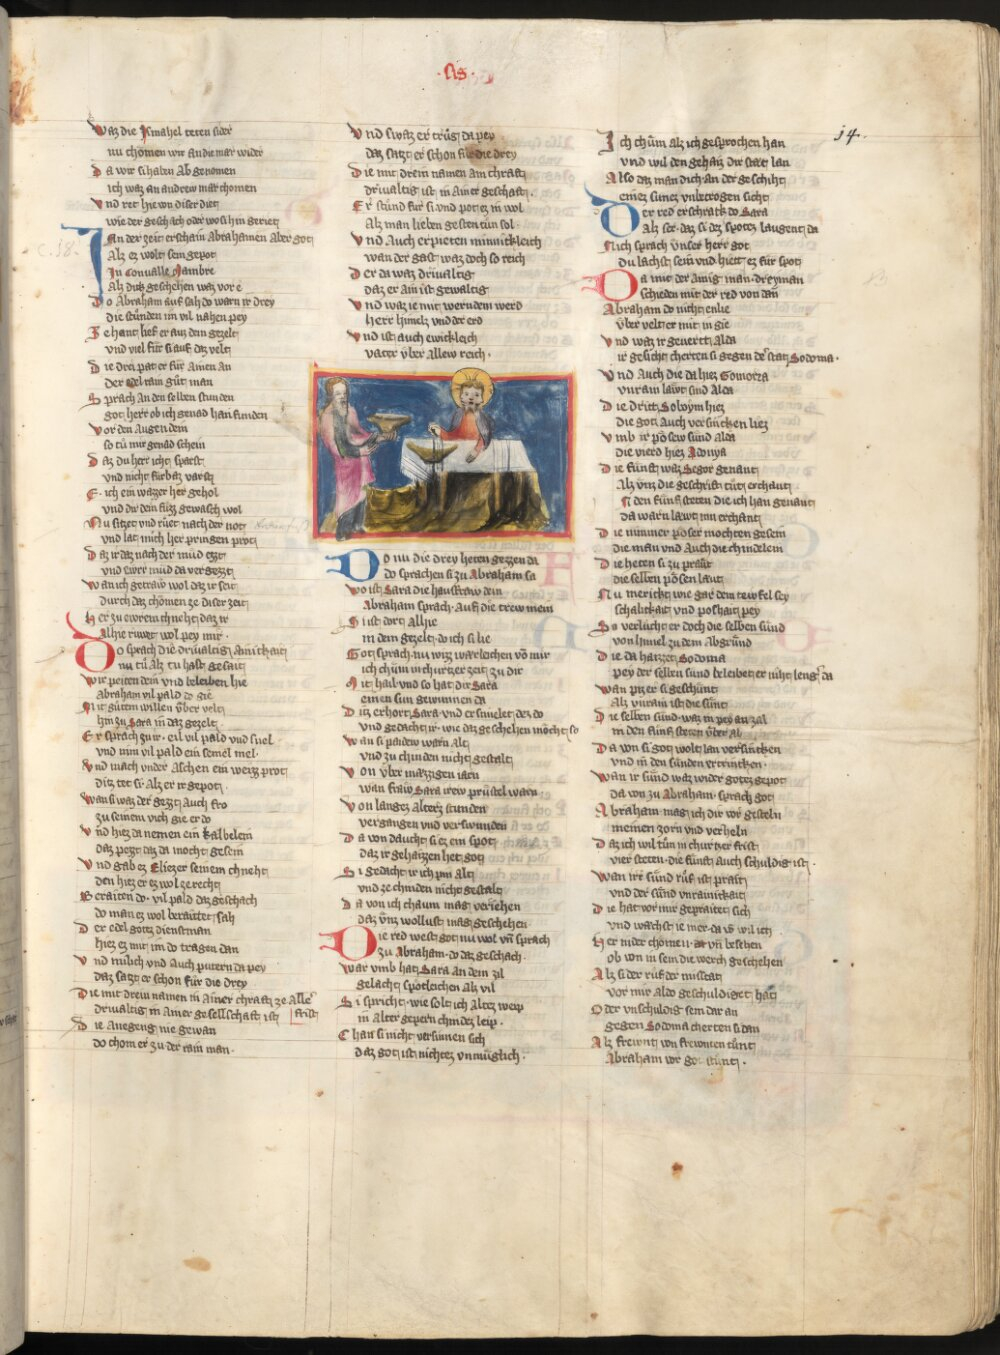 ·As·
14.
Waz die Ismahel teten sider
nu chomen wir an die mär wider
Da wir si haben Ab genomen
ich waz an andrew mär chomen
Vnd ret hie von diser diet
wie der geschach oder wo si hin geriet
In der zeit erschain Abrahamen Aber got
Alz ez wolt sein gepot
In Conualle Mambre
Alz daz geschehen waz vor e
Do Abraham auf sach do warn ir drey
die stunden im vil nahen pey
Ze hant lief er auz dem gezelt
vnd viel für si auf daz velt
Die drei pat er für Ainen An
der Edel rain gůt man
Sprach An den selben stunden
got herr ob ich genad han funden
Vor den Augen dein
so tů mir genad schein
Daz du herr icht sparst
vnd nicht fürbaz varst
E· ich ein wazzer her gehol
vnd dir dein füzz gewasch wol
Nu sitzet vnd růet nach der not
vnd lat mich her pringen prot
Daz ir daz nach der můd ezzt
vnd ewer můd da vergezzt
Wan ich getraw wol daz ir seit
durch daz chomen ze diser zeit
Her zu ewrem chneht daz ir
alhie růwet wol pey mir·
Do sprach die driualtig Ainikait
nu tů Alz tu hast gesait
Wir peiten dein vnd beleiben hie
Abraham vil pald do gie
Mit gůtem willen vͤber velt
hin zu Sara in daz gezelt
Er sprach zu ir· eil vil pald vnd snel
vnd nim vil pald ein semel mel·
Vnd mach vnder Aschen ein waizz prot
ditz tet si· Alz er ir gepot
Wan si waz der gezzt Auch fro
zu seinem vich gie er do
Vnd hiez da nemen ein kalbelein
daz pezt daz da mocht gesein
Vnd gab ez Eliezer seinem chneht
den hiez er ez wol ze recht
Beraiten do· vil pald daz geschach
do man ez wol beraittet sah
Der edel gottz dienstman
hiez ez mit im do tragen dan
Vnd milich vnd Auch putern da pey
daz satzt er schon für die drey
Die mit drein namen in Ainer chraft ze Aller
driualtig in Ainer gesellschaft ist frist
Die Anegeng nie gewan
do chom er zu der rain man·
Vnd swaz er trůg da pey
daz satzt er schon für die drey
Die mit drein namen Ain chraft
driualtig ist in Ainer geschaft·
Er stund für si vnd pot ez in wol
Alz man lieben gesten tun sol
Vnd Auch erpieten minnikleich
wan der gast waz doch so reich
Der da waz driualtig
daz er Ain ist gewaltig
Vnd waz ie mit werndem werd
herr himelz vnd der erd
Vnd ist auch ewickleich
vater vͤber Allew reich·
Do nu die drey heten gezzen da
do sprachen si zu Abraham sa
Wo ist Sara die hausfrow dein
Abraham sprach· Auf die trew mein
Si ist dort alhie
in dem gezelt· do ich si lie
Got sprach· nu wizz warleichen võ mir
ich chům in churtzer zeit zu dir
Mit hail vnd so hat dir Sara
einen sun gewunnen da
Ditz erhort Sara vnd er smielet dez do
vnd gedacht ir· wie daz geschehen mőcht so
Wan si paidew warn Alt
vnd zu chinden nicht gestalt
Von vͤber mazzigen iarn
wan fraw Sara irew prüstel warn·
Von langez alterz stunden
vergangen vnd verswunden
Da von daucht si ez ein spot
daz ir gehaizzen het got
Si gedacht ir ich pin Alt
vnd ze chinden nicht gestalt
Da von ich chaum mag veriehen
daz vͤnz wollust mag geschehen·
Die red west got nu wol vñ sprach
zu Abraham· do daz geschach·
War vmb hat Sara An dem zil
gelacht spotleichen Alz vil
Si spricht· wie solt ich Altez weip
in alter gepern chindez leip·
Chan si nicht versinnen sich
daz got ist nichtez vnmůglich·
Ich chům alz ich gesprochen han
vnd wil den gehaiz dir stät lan
Also daz man dich an der geschiht
einez sunez vnbetrogen sicht
Der red erschrack do Sara
Alz ser· daz si dez spotez laugent da
Nich sprach vnser herr got
Du lachst sein vnd hiett ez für spot
Da mit der Ainig man· dreyman
schieden mit der red von dan
Abraham do nicht enlie
vͤber velt er mit in gie
Vnd waz ir geuertt Alda
ir gesicht cherten si gegen der stat Sodoma·
Vnd Auch die da hiez Gomorra
vnrain lawt sind Alda
Die dritt Soboym hiez
die got Auch versincken liez
Vmb ir pősew sünd Alda
die vierd hiez Adonya
Die fünft waz Segor genant
Alz vͤnz die geschrift tůt erchant
In den fünf steten die ich han genant
da warn lawt inn erchant
Die nimmer pőser mochten gesein
die man vnd Auch die chindelein
Die heten si zu praut
die selben pősen läut
Nu merickt wie gar dem tewfel sey
schalkait vnd poshait pey
So verlücht er doch die selben sünd
von himel zu dem Abgrůnd
Die da haizzet Sodoma
pey der selben sund beleibet er niht lenger da
Wan pitz er si geschünt
Alz vnrain ist die sünt
Die selben sünd· waz in pey an zal
in den fünf steten vͤber al
Da von si got wolt lan versincken
vnd in den sünden ertrincken·
Wan ir sünd waz wider gotez gepot
da von zu Abraham· sprach got
Abraham mag ich dir vor gesteln
meinen zorn vnd verheln
Daz ich wil tůn in churtzer frist
vier steten· die fünft auch schuldig ist·
Wan irr sünd růf ist prait
vnd der sünd vnrainikait
Die hat vor mir gepraitet sich
vnd wachst ie mer· da võ wil ich
Her nider chomen· vñ besehen
ob von in sein die werch geschehen
Alz si der růf der missetat
vor mir Aldo geschuldiget hat
Oder vnschuldig sein dar an
gegen Sodoma cherten si dan
Alz frewnt von frewnten tůnt
Abraham vor got stunt·